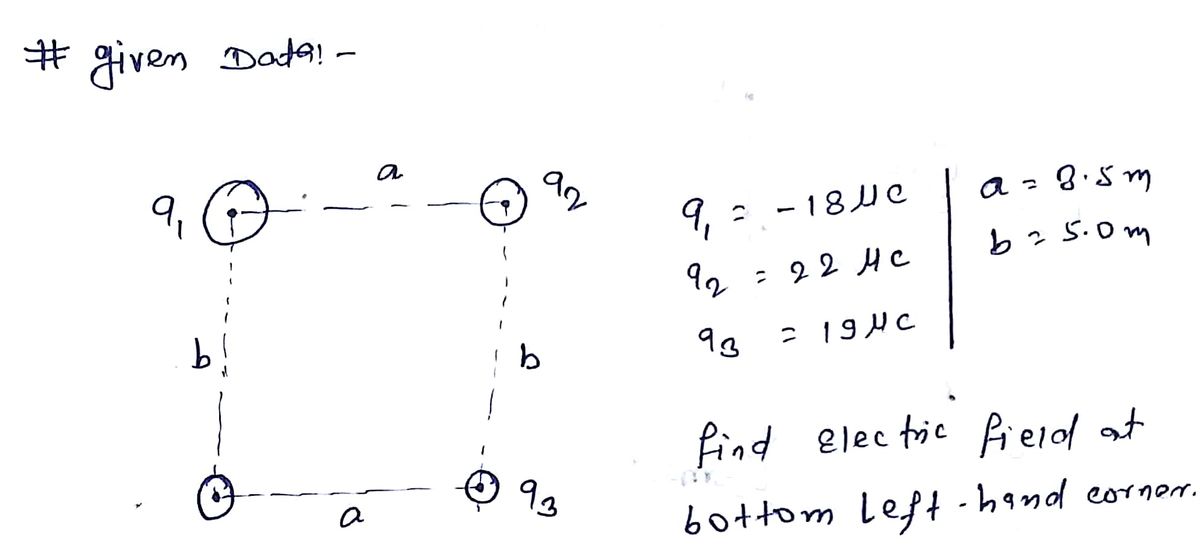 # given Data:-
q₁
a
q₂
b
b
a
q₃
q₁ = -18 μC
q₂ = 22 μC
q₃ = 19 μC
a =
b = 5.0 m
find electric field at
bottom left-hand corner.